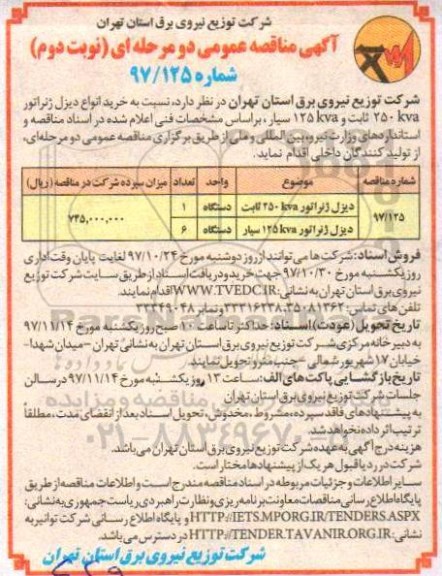 شرکت توزیع نیروی برق استان تهران
آگهی مناقصه عمومی دو مرحله ای (نوبت دوم)
شماره ۹۷/۱۲۵
شرکت توزیع نیروی برق استان تهران در نظر دارد، نسبت به خرید انواع دیزل ژنراتور
۲۵۰ kva ثابت و ۱۲۵ kva سیار، براساس مشخصات فنی اعلام شده در اسناد مناقصه و
استانداردهای وزارت نیرو، بین المللی و ملی از طریق برگزاری مناقصه عمومی دو مرحله ای،
از تولید کنندگان داخلی اقدام نماید.
شماره مناقصه موضوع واحد تعداد میزان سپرده شرکت در مناقصه (ریال)
۹۷/۱۲۵ دیزل ژنراتور ۲۵۰ kva ثابت دستگاه ۱ ۷۴۵,۰۰۰,۰۰۰
دیزل ژنراتور ۱۲۵ kva سیار دستگاه ۶
فروش اسناد: شرکت ها می توانند از روز دوشنبه مورخ ۹۷/۱۰/۲۴ لغایت پایان وقت اداری
روز یکشنبه مورخ ۹۷/۱۰/۳۰ جهت خرید و دریافت اسناد از طریق سایت شرکت توزیع
نیروی برق استان تهران به نشانی: WWW.TVEDC.IR اقدام نمایند.
تلفن های تماس: ۳۵۰۸۱۳۶۲-۳۳۳۱۶۲۳۸ و نمابر ۳۳۳۴۹۰۴۸
تاریخ تحویل (عودت) اسناد: حداکثر تا ساعت ۱۰ صبح روز یکشنبه مورخ ۹۷/۱۱/۱۴
به دبیرخانه مرکزی شرکت توزیع نیروی برق استان تهران به نشانی تهران - میدان شهدا-
خیابان ۱۷ شهریور شمالی - جنب مترو تحویل نمایند.
تاریخ بازگشایی پاکت های الف: ساعت ۱۳ روز یکشنبه مورخ ۹۷/۱۱/۱۴ در سالن
جلسات شرکت توزیع نیروی برق استان تهران
به پیشنهادهای فاقد سپرده، مشروط، مخدوش، تحویل اسناد بعد از انقضای مدت، مطلقاً
ترتیب اثر داده نخواهد شد.
هزینه درج آگهی به عهده شرکت توزیع نیروی برق استان تهران می باشد.
شرکت در رد یا قبول هر یک از پیشنهادها مختار است.
سایر اطلاعات و جزئیات مربوطه در اسناد مناقصه مندرج است و اطلاعات مناقصه از طریق
پایگاه اطلاع رسانی مناقصات معاونت برنامه ریزی و نظارت راهبردی ریاست جمهوری به نشانی:
HTTP://IETS.MPORG.IR/TENDERS.ASPX و پایگاه اطلاع رسانی شرکت توانیر به
نشانی: HTTP://TENDER.TAVANIR.ORG.IR در دسترس می باشد.
شرکت توزیع نیروی برق استان تهران
۰۲۱-۸۸۳۴۹۶۷۰